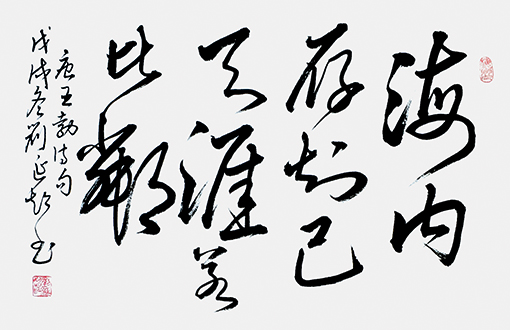 海内
存知己
天涯若
比鄰
唐王勃诗句
戊戌冬刘延书